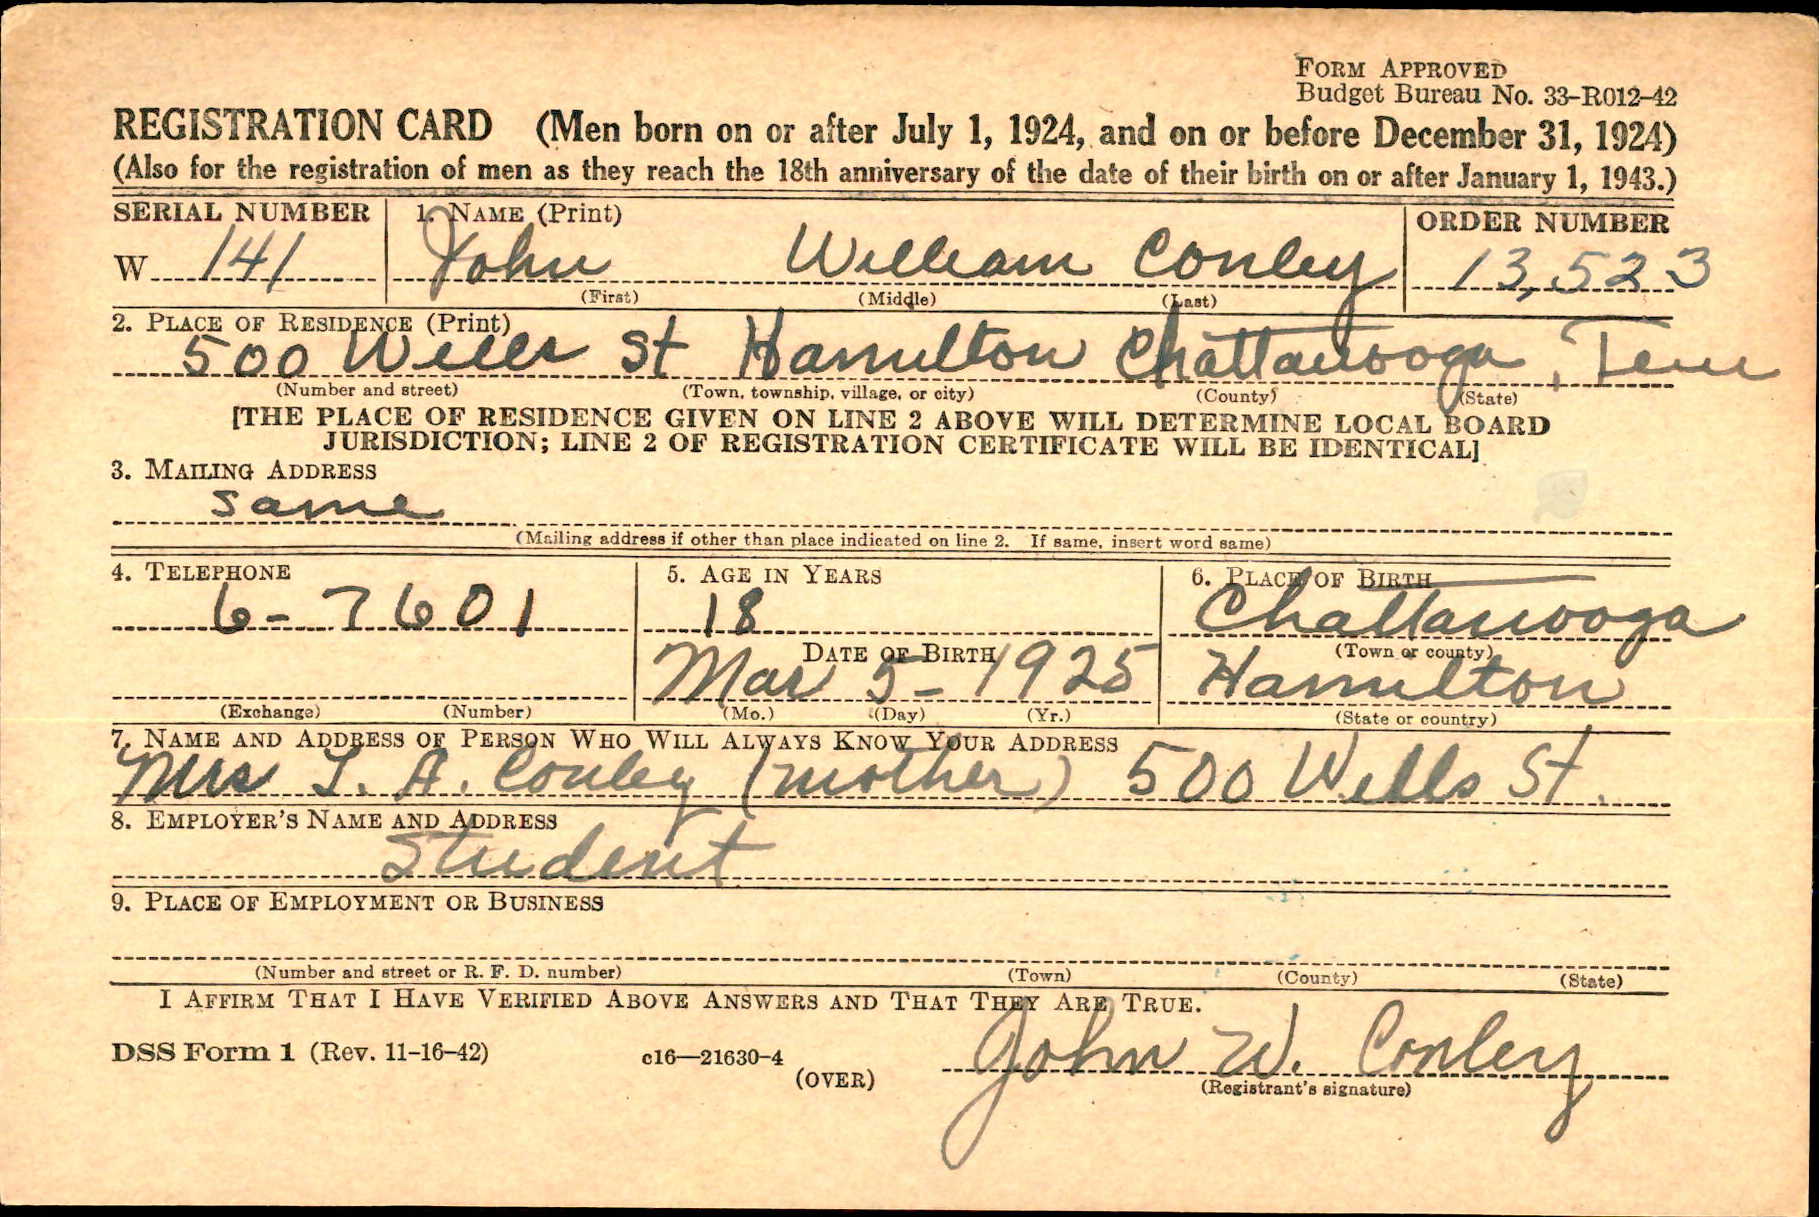 FORM APPROVED
Budget Bureau No. 33-R012-42
REGISTRATION CARD (Men born on or after July 1, 1924, and on or before December 31, 1924)
(Also for the registration of men as they reach the 18th anniversary of the date of their birth on or after January 1, 1943.)
SERIAL NUMBER 1. NAME (Print) ORDER NUMBER
W 141 John William Conley 13,523
(First) (Middle) (Last)
2. PLACE OF RESIDENCE (Print)
500 Wells St Hamilton Chattanooga, Tenn
(Number and street) (Town, township, village, or city) (County) (State)
[THE PLACE OF RESIDENCE GIVEN ON LINE 2 ABOVE WILL DETERMINE LOCAL BOARD
JURISDICTION; LINE 2 OF REGISTRATION CERTIFICATE WILL BE IDENTICAL]
3. MAILING ADDRESS
same
(Mailing address if other than place indicated on line 2. If same, insert word same)
4. TELEPHONE 5. AGE IN YEARS 6. PLACE OF BIRTH
6-7601 18 Chattanooga
DATE OF BIRTH (Town or county)
Mar 5-1925 Hamilton
(Exchange) (Number) (Mo.) (Day) (Yr.) (State or country)
7. NAME AND ADDRESS OF PERSON WHO WILL ALWAYS KNOW YOUR ADDRESS
Mrs L. A. Conley (mother) 500 Wells St.
8. EMPLOYER'S NAME AND ADDRESS
Student
9. PLACE OF EMPLOYMENT OR BUSINESS
(Number and street or R. F. D. number) (Town) (County) (State)
I AFFIRM THAT I HAVE VERIFIED ABOVE ANSWERS AND THAT THEY ARE TRUE.
DSS Form 1 (Rev. 11-16-42) c16—21630-4 John W. Conley
(OVER) (Registrant's signature)